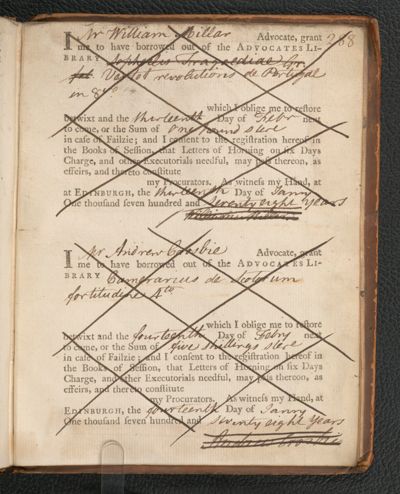 288
I Mr William Millar Advocate, grant
me to have borrowed out of the ADVOCATES LI-
BRARY Sophoclis Tragaediae Gr.
Vertot revolutions de Portugal
in 8vo
which I oblige me to restore
betwixt and the thirteenth Day of Febr next
to come, or the Sum of One pound sterg
in case of Failzie; and I consent to the registration hereof in
the Books of Session, that Letters of Horning on six Days
Charge, and other Executorials needful, may pass thereon, as
effeirs, and thereto constitute
my Procurators. As witness my Hand, at
at EDINBURGH, the thirteenth Day of Janry
One thousand seven hundred and seventy eight Years
William Millar
I Mr Andrew Crosbie Advocate, grant
me to have borrowed out of the ADVOCATES LI-
BRARY Camerarius de Scotorum
fortitudine 4to
which I oblige me to restore
betwixt and the fourteenth Day of Febry next
to come, or the Sum of five shillings sterg
in case of Failzie; and I consent to the registration hereof in
the Books of Session, that Letters of Horning on six Days
Charge, and other Executorials needful, may pass thereon, as
effeirs, and thereto constitute
my Procurators. As witness my Hand, at
EDINBURGH, the fourteenth Day of Janry
One thousand seven hundred and seventy eight Years